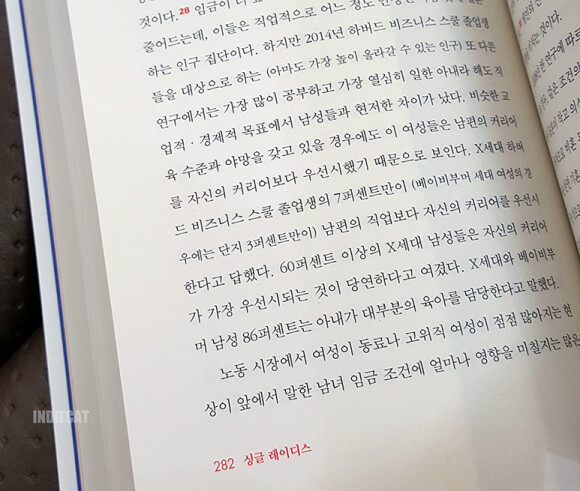 것이다.28 임금이 더
줄어드는데, 이들은 직업적으로 어느 정도
하는 인구 집단이다. 하지만 2014년 하버드 비즈니스 스쿨 졸업생
들을 대상으로 하는 (아마도 가장 높이 올라갈 수 있는 인구) 또 다른
연구에서는 가장 많이 공부하고 가장 열심히 일한 아내라 해도 직
업적·경제적 목표에서 남성들과 현저한 차이가 났다. 비슷한 교
육 수준과 야망을 갖고 있을 경우에도 이 여성들은 남편의 커리어
를 자신의 커리어보다 우선시했기 때문으로 보인다. X세대 하버
드 비즈니스 스쿨 졸업생의 7퍼센트만이 (베이비부머 세대 여성의 경
우에는 단지 3퍼센트만이) 남편의 직업보다 자신의 커리어를 우선시
한다고 답했다. 60퍼센트 이상의 X세대 남성들은 자신의 커리어
가 가장 우선시되는 것이 당연하다고 여겼다. X세대와 베이비부
머 남성 86퍼센트는 아내가 대부분의 육아를 담당한다고 말했다.
노동 시장에서 여성이 동료나 고위직 여성이 점점 많아지는 현
상이 앞에서 말한 남녀 임금 조건에 얼마나 영향을 미칠지는 많은
INDIECAT
282 싱글 레이디스